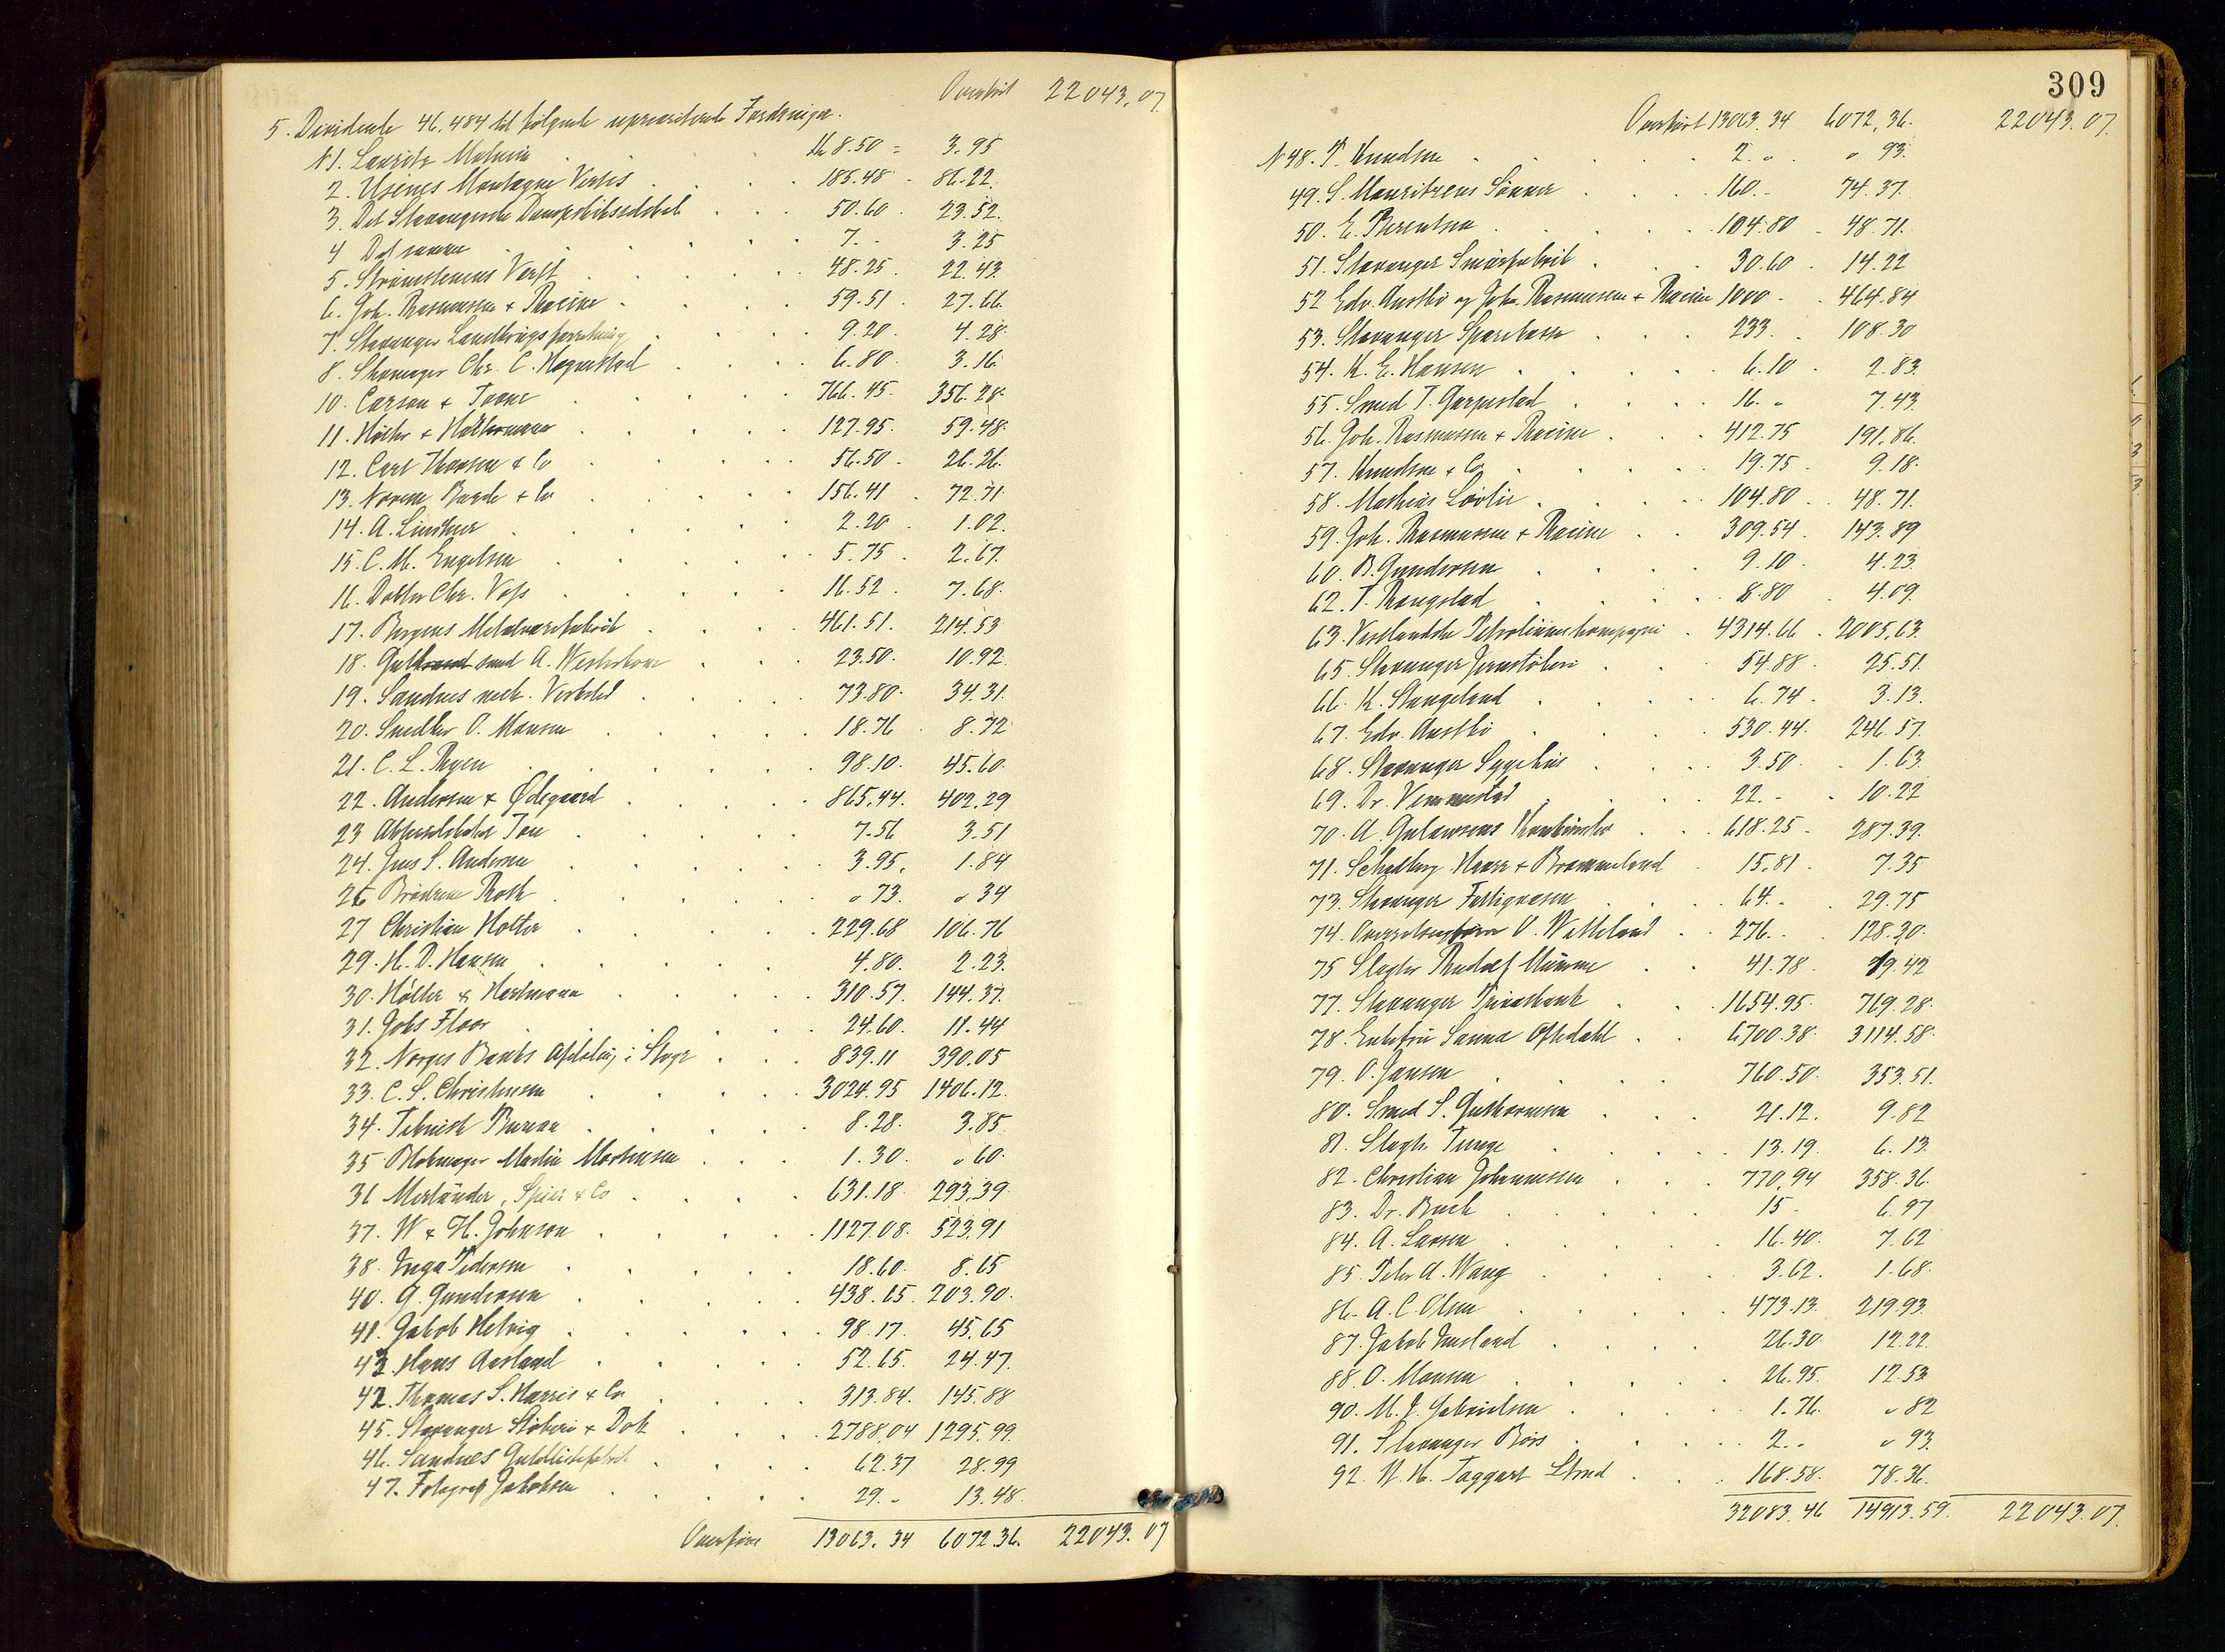 Overført 22043.07
5. Dividende 46,484 til følgende uprioriterede Fordringer.
N1. Lauritz Malmin Kr 8.50 = 3.95
2. Usines Montagne Verkes 185.48 - 86.22.
3. Det Stavangerske Dampskibsselskab 50.60. 23.52.
4 Det samme 7.- 3.25
5. Strømstenens Værft 48.25. 22.43
6. Joh. Rasmussen & Racine 59.51. 27.66
7. Stavanger Landbrugsforretning 9.20. 4.28.
8. Skomager Chr. C. Hognestad 6.80. 3.16.
10. Carson & Toone 766.45. 356.28.
11. Hölter & Haltermann 127.95. 59.48.
12. Carl Thorsen & Co 56.50. 26.26.
13. Noreen Baade & Co 156.41. 72.71.
14. A. Lindtner 2.20. 1.02.
15. C. M. Engelsen 5.75. 2.67.
16. Doktor Chr. Voss 16.52. 7.68.
17. Bergens Metalvarefabrik 461.51. 214.53
18. Guldsmed A. Westerboe 23.50. 10.92.
19. Sandnes mek. Verksted 73.80. 34.31.
20. Snedker O. Monsen 18.76. 8.72
21. C. L. Rygen 98.10. 45.60.
22. Andersen & Ødegaard 865.44. 402.29
23 Aktieselskabet Tou 7.56 3.51
24. Jens S. Andersen 3.95. 1.84
26 Brødrene Roth " 73. " 34
27 Christian Holter 229.68 106.76
29. H. D. Hansen 4.80. 2.23.
30. Höller & Hartmann 310.57. 144.37.
31. Johs Floor 24.60. 11.44
32. Norges Banks Afdeling i Stvgr 839.11 390.05
33. C. S. Christensen 3024.95 1406.12.
34. Teknisk Bureau 8.28. 3.85.
35 Blikmager Martin Mortensen 1.30. " 60.
36 Merländer, Spier & Co 631.18. 293.39.
37. W & H. Johnson 1127.08. 523.91
38. Inga Pedersen 18.60. 8.65
40. G. Gundersen 438.65. 203.90.
41. Jakob Helvig 98.17. 45.65
43. Hans Aasland 52.65. 24.47.
42. Thomas S. Harris & Co 313.84. 145.88
45. Stavanger Støberi & Dok 2788.04 1295.99.
46. Sandnes 62.37 28.99
47. Fotograf Jakobsen 29.- 13.48.
Overføres 13063.34 6072.36. 22043.07
309
Overført 13063.34 6072.36. 22043.07.
N48. T. Knudsen 2.". " 93.
49. S. Mauritzens Sønner 160.- 74.37.
50. E. Berentsen 104.80 - 48.71.
51. Stavanger Smørfabrik 30.60. 14.22
52 Edv. Austbø og Joh. Rasmussen & Racine 1000 - 464.84
53. Stavanger Sparekasse 233. 108.30
54. K. E. Hansen 6.10. 2.83.
55. Smed T. Garpestad 16." 7.43.
56. Joh. Rasmussen & Racine 412.75 191.86.
57. Knudsen & Co 19.75. 9.18.
58. Mathias Løvlie 104.80. 48.71.
59. Joh. Rasmussen & Racine 309.54. 143.89
60. B. Gundersen 9.10. 4.23.
62. T. Rangstad 8.80. 4.09.
63. Vestlandske Petroliumskompagni 4314.66. 2005.63.
65. Stavanger Jernstøberi 54.88. 25.51.
66. K. Stangeland 6.74. 3.13.
67. Edv. Austbø 530.44. 246.57.
68. Stavanger Sygehus 3.50. 1.63.
69. Dr. Vennestad 22.- 10.22
70. A. Gulawsons 618.25. 287.39.
71. Schadberg Haarr & Brommeland 15.81. 7.35
73. Stavanger Fattigvæsen 64.. 29.75
74. O. Watteland 276.. 128.30.
75 Slagter Rudolf Mümme 41.78. 19.42
77. Stavanger Privatbank 1654.95. 769.28.
78. Enkefru Sanna Oftedahl 6700.38. 3114.58.
79. O. Jansen 760.50. 353.51.
80. Smed S. Guthormsen 21.12. 9.82
81. Slagter Tunge 13.19. 6.13.
82. Christian Johannessen 770.94 358.36.
83. Dr. Buch 15 - 6.97
84. A. Larsen 16.40. 7.62
85. Peter A. Wang 3.62. 1.68.
86. A. C. Olsen 473.13. 219.93.
87. Jakob Husland 26.30. 12.22.
88. O. Monsen 26.95. 12.53
90. M. J. Gabrielsen 1.76. " 82
91. Stavanger Børs 2.. " 93.
92. N. H. Taggart Strand 168.58. 78.36.
32083.46 14913.59. 22043.07.